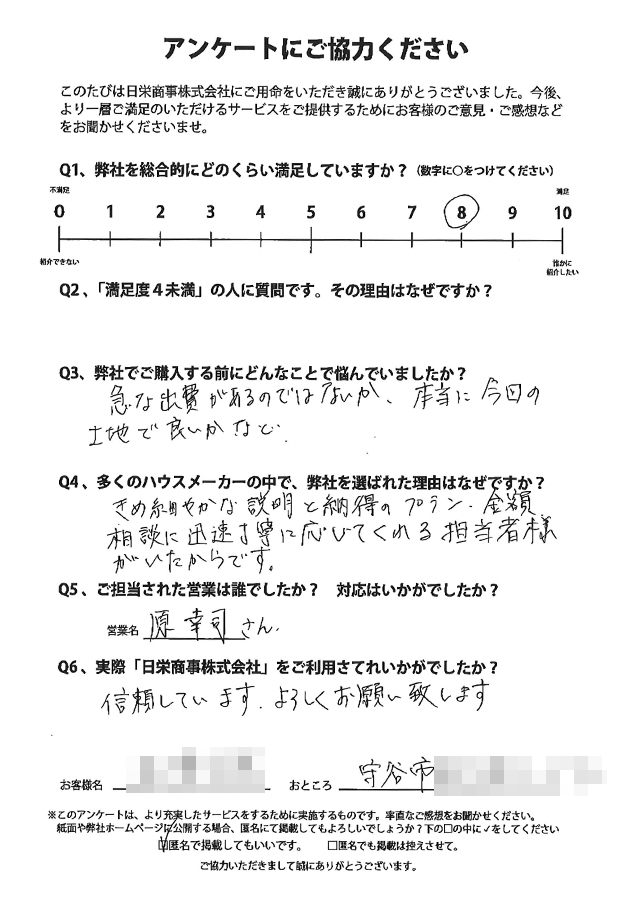 アンケートにご協力ください
このたびは日栄商事株式会社にご用命をいただき誠にありがとうございました。今後、
より一層ご満足のいただけるサービスをご提供するためにお客様のご意見・ご感想など
をお聞かせくださいませ。
Q1、弊社を総合的にどのくらい満足していますか？（数字に○をつけてください）
不満足 満足
0 1 2 3 4 5 6 7 8 9 10
紹介できない 誰かに
紹介したい
Q2、「満足度４未満」の人に質問です。その理由はなぜですか？
Q3、弊社でご購入する前にどんなことで悩んでいましたか？
急な出費があるのではないか、本当に今回の
土地で良いかなど.
Q4、多くのハウスメーカーの中で、弊社を選ばれた理由はなぜですか？
きめ細やかな説明と納得のプラン・金額
相談に迅速丁寧に応じてくれる担当者様
がいたからです。
Q5、ご担当された営業は誰でしたか？　対応はいかがでしたか？
営業名 原 幸司 さん.
Q6、実際「日栄商事株式会社」をご利用さてれいかがでしたか？
信頼しています.よろしくお願い致します
お客様名 おところ 守谷市
※このアンケートは、より充実したサービスをするために実施するものです。率直なご感想をお聞かせください。
紙面や弊社ホームページに公開する場合、匿名にて掲載してもよろしいでしょうか？下の□の中に✓をしてください
☑匿名で掲載してもいいです。　□匿名でも掲載は控えさせて。
ご協力いただきまして誠にありがとうございます。